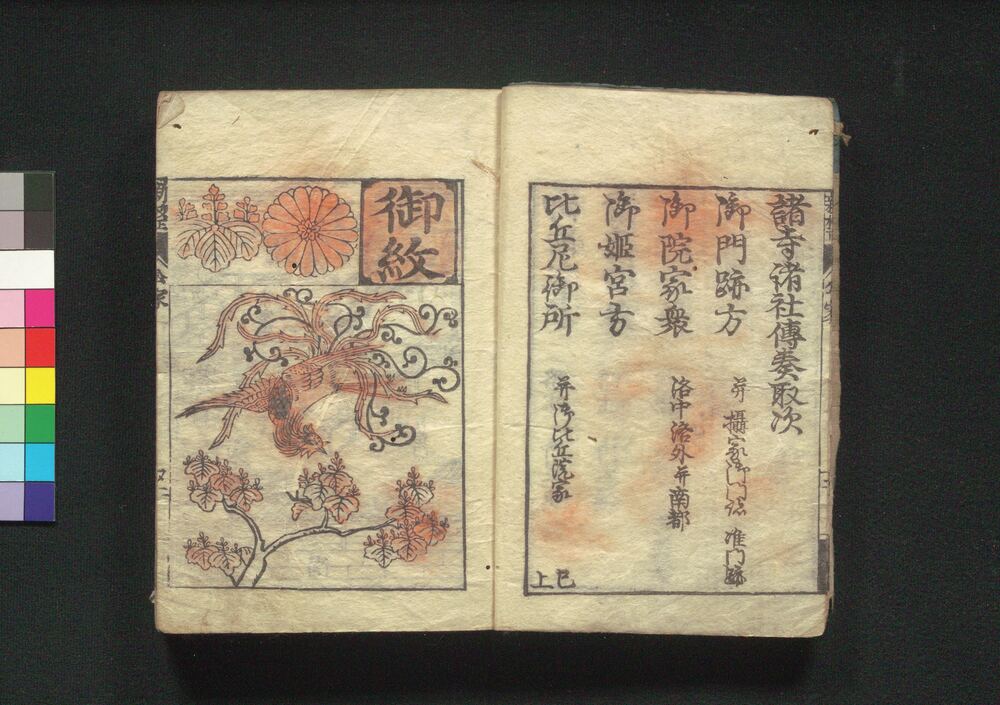 諸寺諸社傳奏取次
御門跡方
并攝家御門跡 准門跡
御院家衆
洛中洛外并南都
御姫宮方
比丘尼御所
并御比丘尼家
巳上
御紋
公家